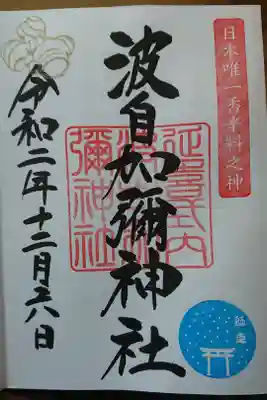 日本唯一香辛料之神
波自加彌神社
延喜式内
波自加
彌神社
師走
令和二年十二月六日